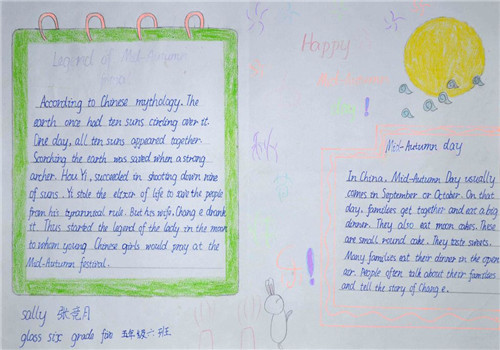 Legend of Mid-Autumn
According to Chinese mythology. The
earth once had ten suns circling over it.
One day, all ten suns appeared together.
Scorching the earth was saved when a strong
archer. Hou Yi, succeeded in shooting down nine
of suns. Yi stole the elixir of life to save the people
from his tyrannical rule. But his wife. Chang e drank
it. Thus started the legend of the lady in the moon
to whom young Chinese girls would pray at the
Mid-Autumn festival.
sally 张范月
glass six grade five 五年级六班
Happy
Mid-Autumn day
In China, Mid-Autumn Day usually
comes in September or October. On that
day, families get together and eat a big
dinner. They also eat moon cakes. These
are small round cake. They taste sweets.
Many families eat their dinner in the open
air. People often talk about their families
and tell the story of Chang e.